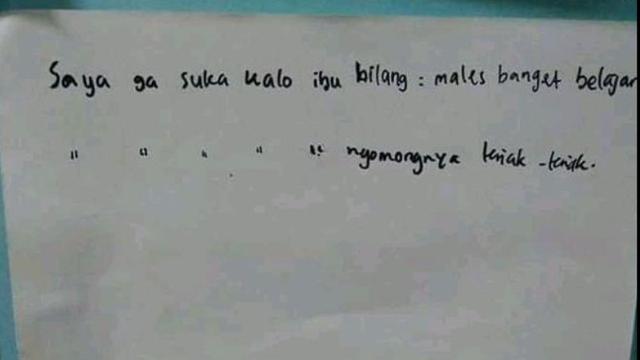 Saya ga suka kalo ibu bilang : males banget belajar
" " " " " ngomongnya teriak-teriak.